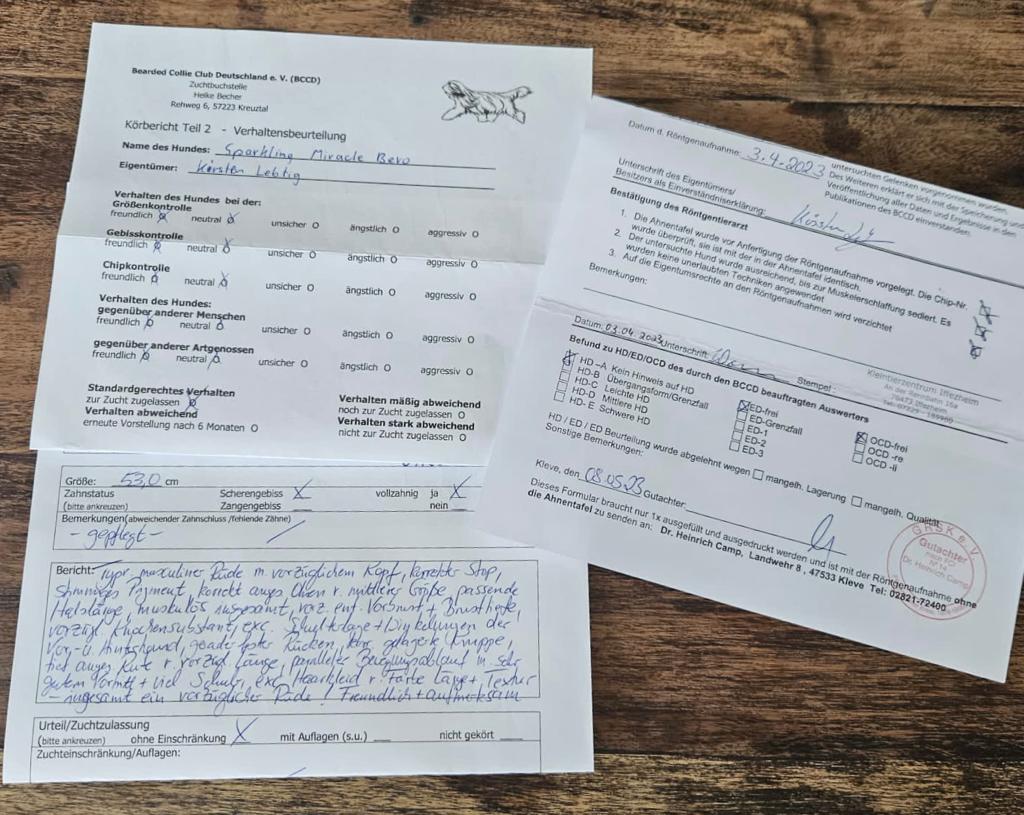 Bearded Collie Club Deutschland e. V. (BCCD)
Zuchtbuchstelle
Heike Becher
Rehweg 6, 57223 Kreuztal
Körbericht Teil 2 - Verhaltensbeurteilung
Name des Hundes: Sparkling Miracle Bero
Eigentümer: Kirsten Lebtig
Verhalten des Hundes bei der:
Größenkontrolle
freundlich neutral unsicher O ängstlich O aggressiv O
Gebisskontrolle
freundlich neutral unsicher O ängstlich O aggressiv O
Chipkontrolle
freundlich neutral unsicher O ängstlich O aggressiv O
Verhalten des Hundes:
gegenüber anderer Menschen
freundlich neutral unsicher O ängstlich O aggressiv O
gegenüber anderer Artgenossen
freundlich neutral unsicher O ängstlich O aggressiv O
Standardgerechtes Verhalten Verhalten mäßig abweichend
zur Zucht zugelassen noch zur Zucht zugelassen O
Verhalten abweichend Verhalten stark abweichend
erneute Vorstellung nach 6 Monaten O nicht zur Zucht zugelassen O
Größe: 53,0 cm
Zahnstatus Scherengebiss X vollzahnig ja X
(bitte ankreuzen) Zangengebiss nein
Bemerkungen(abweichender Zahnschluss /fehlende Zähne)
- gepflegt -
Bericht: Typv. maskuliner Rüde m. vorzüglichem Kopf, korrekter Stop,
stimmiges Pigment, korrekt anges. Ohren v. mittlerer Größe, passende
Halslänge, muskulös insgesamt, vorz. entw. Vorbrust + Brusttiefe,
vorzügl. Knochensubstanz, exc. Schulterlage + Winkelungen der
Vor- u. Hinterhand, gerader fester Rücken, korr. gelagerte Kruppe,
tief anges. Rute v. vorzügl. Länge, paralleler Bewegungsablauf m. sehr
gutem Vortritt + viel Schub, exc. Haarkleid v. Farbe Länge + Textur
- insgesamt ein vorzüglicher Rüde! Freundlich + aufmerksam
Urteil/Zuchtzulassung
(bitte ankreuzen) ohne Einschränkung X mit Auflagen (s.u.) nicht gekört
Zuchteinschränkung/Auflagen:
Datum d. Röntgenaufnahme: 3.4.2023
untersuchten Gelenken vorgenommen wurden.
Des Weiteren erklärt er sich mit der Speicherung und
Veröffentlichung aller Daten und Ergebnisse in den
Publikationen des BCCD einverstanden.
Unterschrift des Eigentümers/
Besitzers als Einverständniserklärung:
Bestätigung des Röntgentierarzt
1. Die Ahnentafel wurde vor Anfertigung der Röntgenaufnahme vorgelegt. Die Chip-Nr.
wurde überprüft, sie ist mit der in der Ahnentafel identisch.
2. Der untersuchte Hund wurde ausreichend, bis zur Muskelerschlaffung sediert. Es
wurden keine unerlaubten Techniken angewendet
3. Auf die Eigentumsrechte an den Röntgenaufnahmen wird verzichtet
Bemerkungen:
Datum: 03.04.2023 Unterschrift: Stempel:
Kleintierzentrum Iffezheim
An der Rennbahn 16a
76473 Iffezheim
Befund zu HD/ED/OCD des durch den BCCD beauftragten Auswerters
HD –A Kein Hinweis auf HD ED-frei OCD-frei
HD-B Übergangsform/Grenzfall ED-Grenzfall OCD -re
HD-C Leichte HD ED-1 OCD -li
HD-D Mittlere HD ED-2
HD- E Schwere HD ED-3
HD / ED / ED Beurteilung wurde abgelehnt wegen mangelh. Lagerung mangelh. Qualität
Sonstige Bemerkungen:
Kleve, den 08.05.23 Gutachter:
Dieses Formular braucht nur 1x ausgefüllt und ausgedruckt werden und ist mit der Röntgenaufnahme ohne
die Ahnentafel zu senden an: Dr. Heinrich Camp, Landwehr 8 , 47533 Kleve Tel: 02821-72400
GRSK e.V.
Gutachter
nach FCI
N° 14
Dr. Heinrich Camp